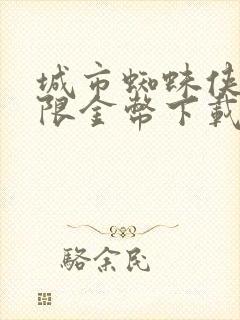 城市蜘蛛侠
限金幣下載
駱余民